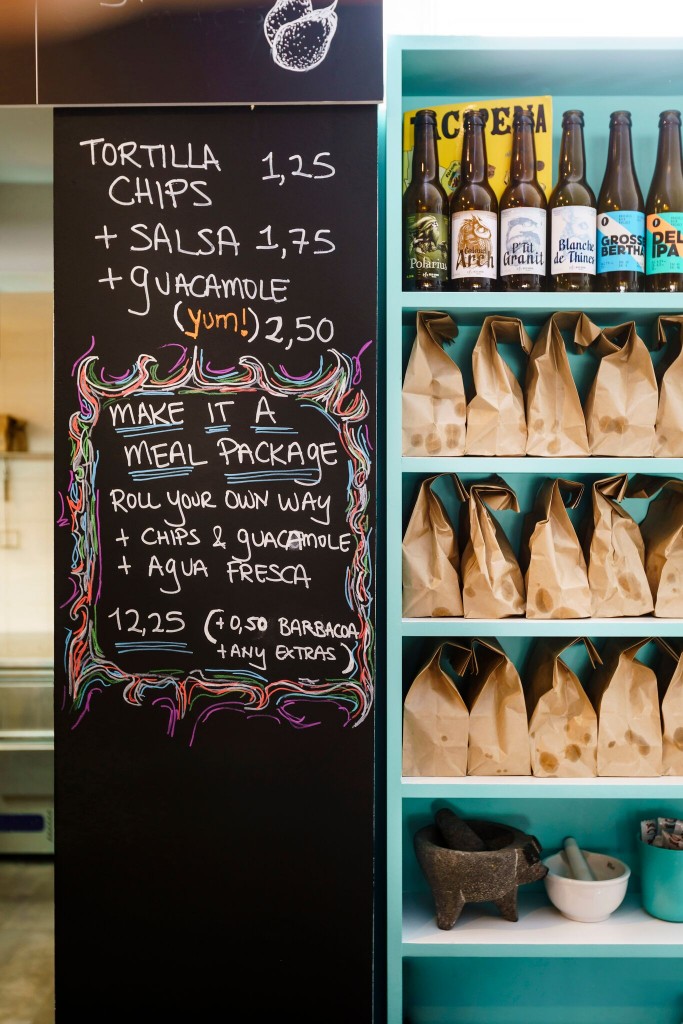 TORTILLA 1,25
CHIPS
+ SALSA 1,75
+ guacamole
(yum!) 2,50
MAKE IT A
MEAL PACKAGE
ROLL YOUR OWN WAY
+ CHIPS & guacamole
+ AGUA FRESCA
12,25 (+0,50 BARBACOA
+ANY EXTRAS)
Polarius
Arch
P'tit
Granit
Blanche
de Thines
GROSSE
BERTHA
DEL
IPA